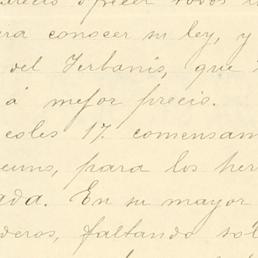 ofrecer todos
conocer su ley, y
del Verbanis, que
á mejor precio.
coles 17. comensam
para los her
ada. En su mayor
deros, faltando sol